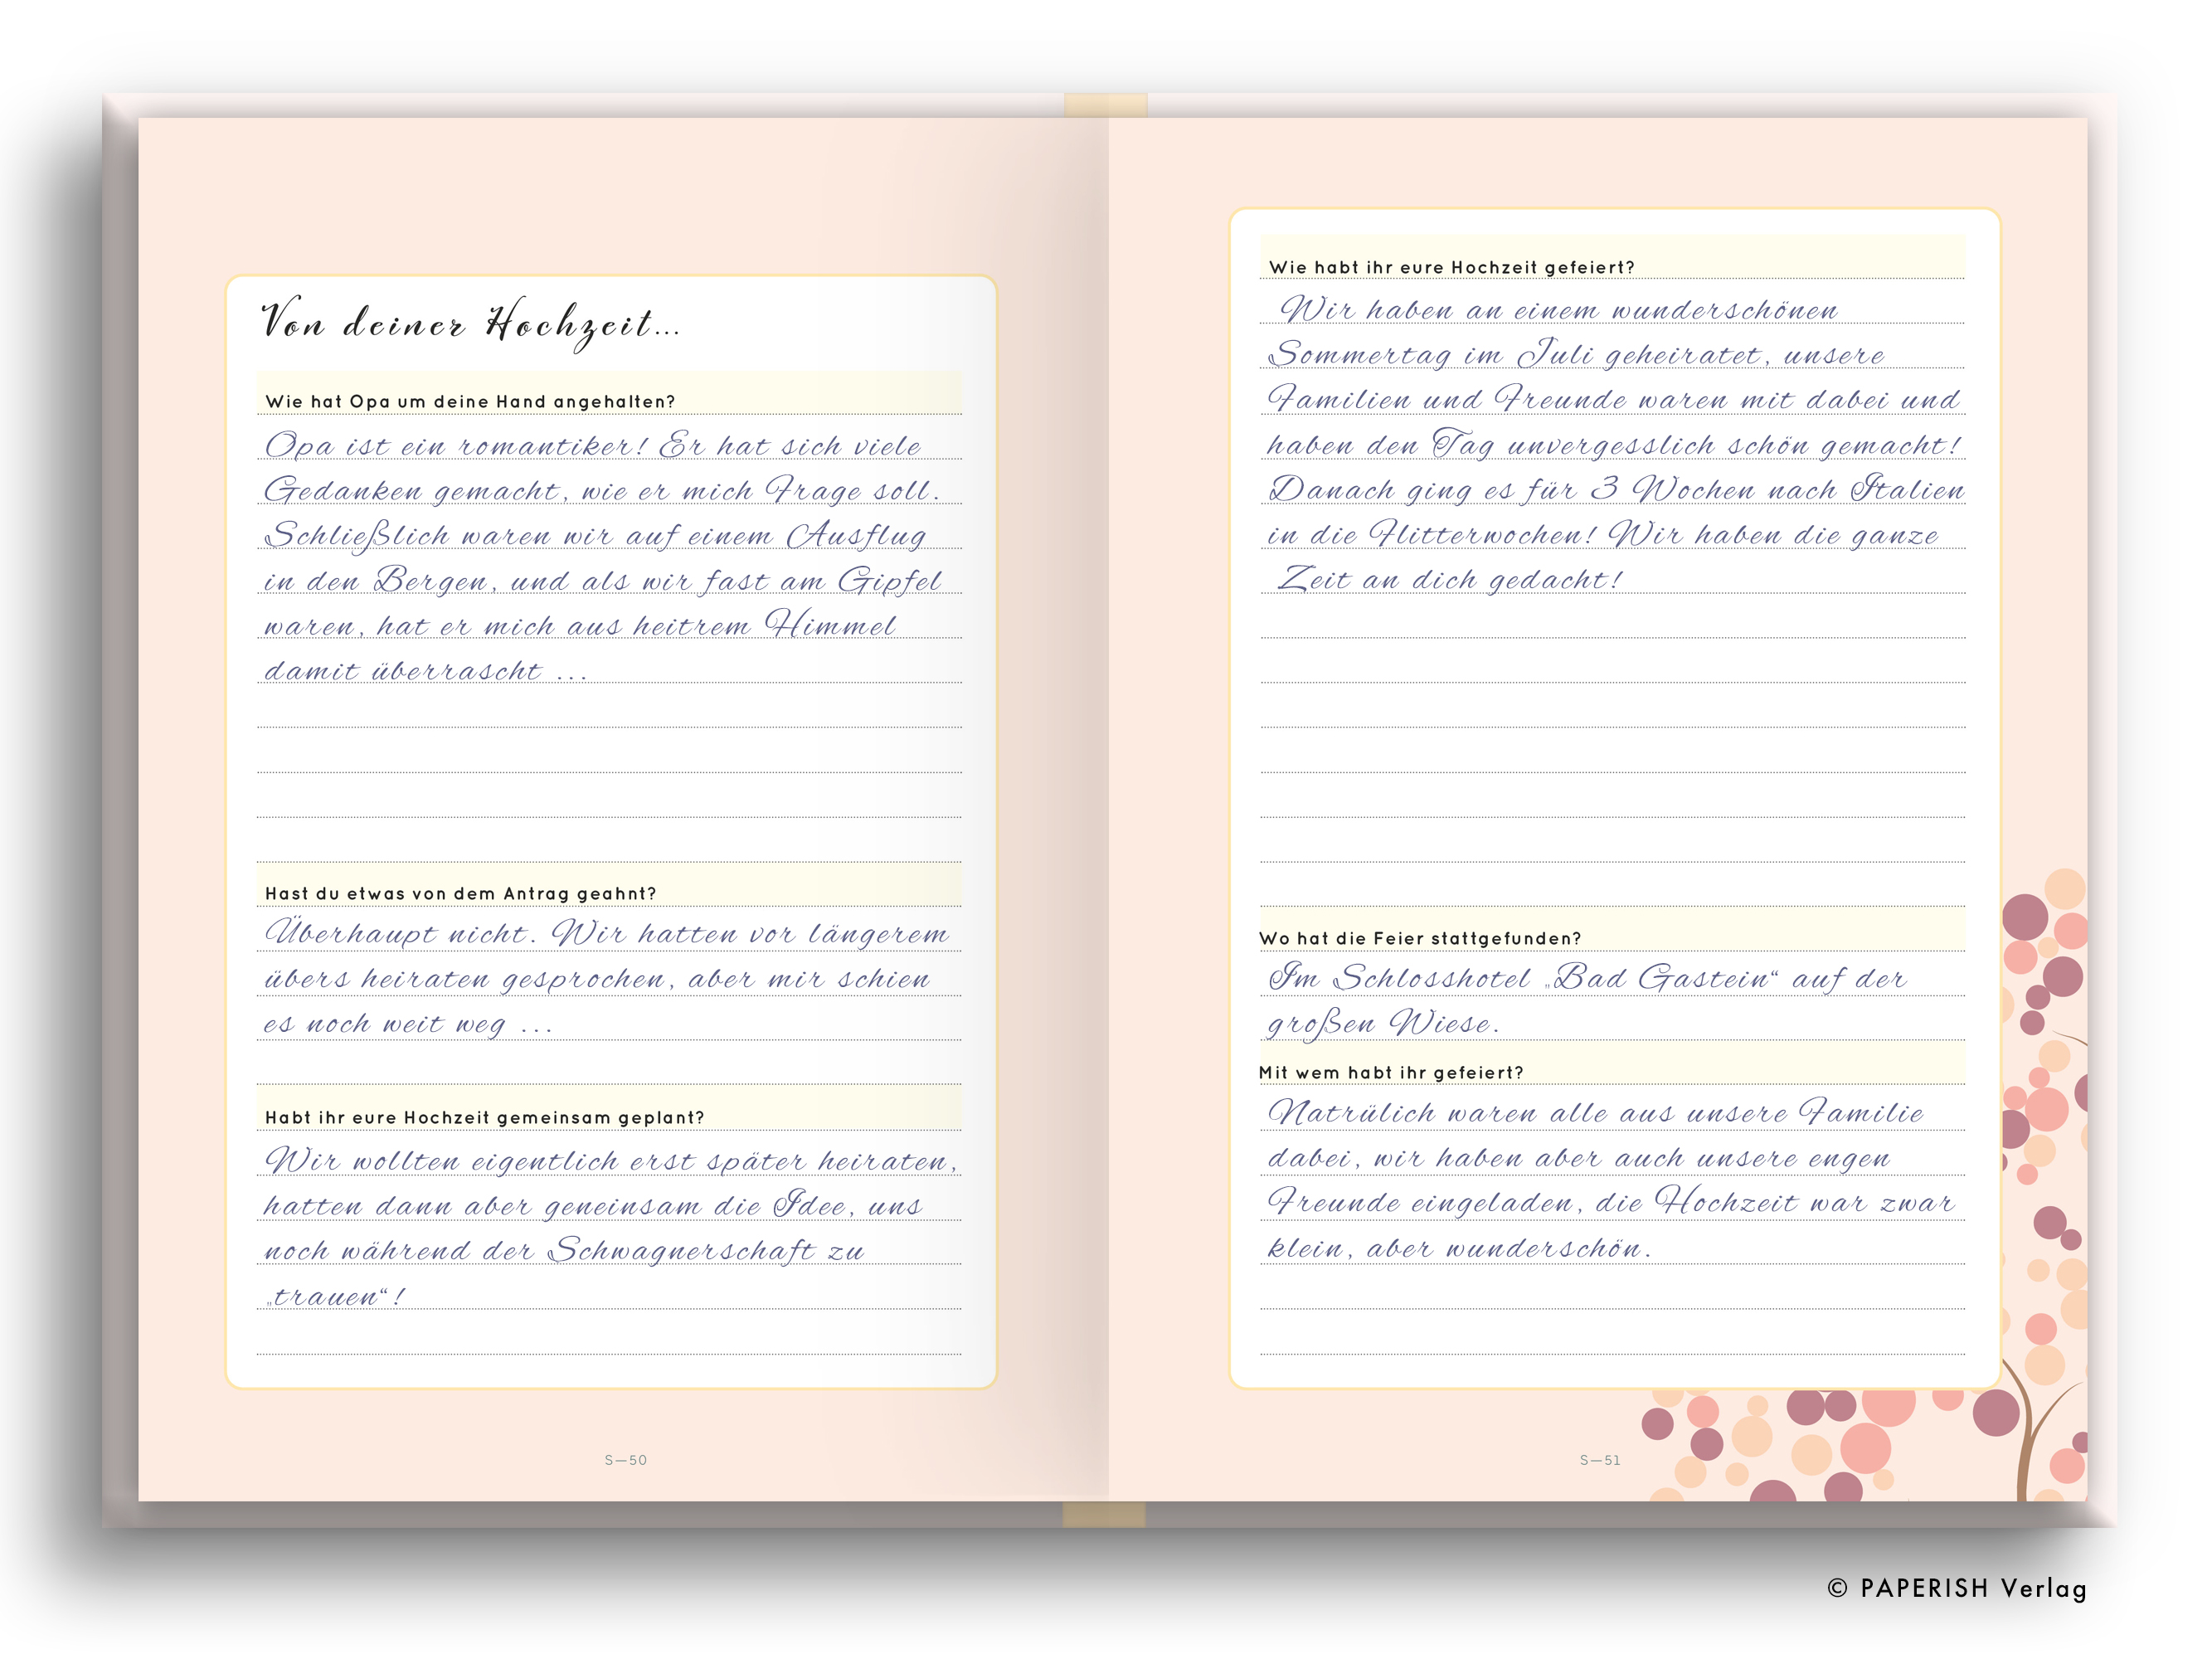 Von deiner Hochzeit...
Wie hat Opa um deine Hand angehalten?
Opa ist ein romantiker! Er hat sich viele
Gedanken gemacht, wie er mich Frage soll.
Schließlich waren wir auf einem Ausflug
in den Bergen, und als wir fast am Gipfel
waren, hat er mich aus heitrem Himmel
damit überrascht ...
Hast du etwas von dem Antrag geahnt?
Überhaupt nicht. Wir hatten vor längerem
übers heiraten gesprochen, aber mir schien
es noch weit weg ...
Habt ihr eure Hochzeit gemeinsam geplant?
Wir wollten eigentlich erst später heiraten,
hatten dann aber geneinsam die Idee, uns
noch während der Schwagnerschaft zu
„trauen“!
S—50
Wie habt ihr eure Hochzeit gefeiert?
Wir haben an einem wunderschönen
Sommertag im Juli geheiratet, unsere
Familien und Freunde waren mit dabei und
haben den Tag unvergesslich schön gemacht!
Danach ging es für 3 Wochen nach Italien
in die Flitterwochen! Wir haben die ganze
Zeit an dich gedacht!
Wo hat die Feier stattgefunden?
Im Schlosshotel „Bad Gastein“ auf der
großen Wiese.
Mit wem habt ihr gefeiert?
Natrülich waren alle aus unsere Familie
dabei, wir haben aber auch unsere engen
Freunde eingeladen, die Hochzeit war zwar
klein, aber wunderschön.
S—51
© PAPERISH Verlag